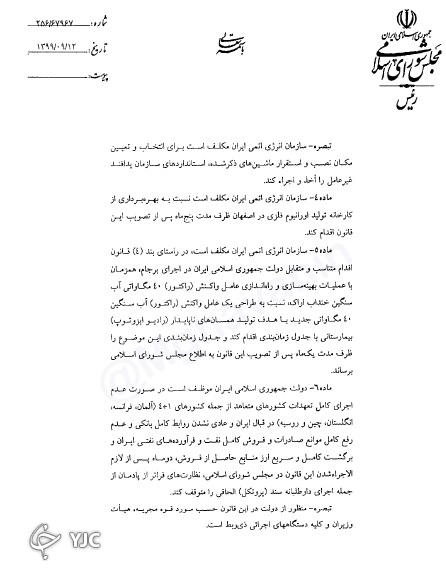 جمهوری اسلامی ایران
مجلس شورای اسلامی
رئیس
باسمه تعالی
شماره: ۲۵۶/۶۷۹۶۷
تاریخ: ۱۳۹۹/۰۹/۱۲
پیوست:
تبصره- سازمان انرژی اتمی ایران مکلف است برای انتخاب و تعیین
مکان نصب و استقرار ماشین‌های ذکرشده، استانداردهای سازمان پدافند
غیرعامل را أخذ و اجراء کند.
ماده۴- سازمان انرژی اتمی ایران مکلف است نسبت به بهره‌برداری از
کارخانه تولید اورانیوم فلزی در اصفهان ظرف مدت پنج‌ماه پس از تصویب این
قانون اقدام کند.
ماده۵- سازمان انرژی اتمی ایران مکلف است، در راستای بند (۴) قانون
اقدام متناسب و متقابل دولت جمهوری اسلامی ایران در اجرای برجام، همزمان
با عملیات بهینه‌سازی و راه‌اندازی عامل واکنش (راکتور) ۴۰ مگاواتی آب
سنگین خنداب اراک، نسبت به طراحی یک عامل واکنش (راکتور) آب سنگین
۴۰ مگاواتی جدید با هدف تولید همسان‌های ناپایدار (رادیو ایزوتوپ)
بیمارستانی با جدول زمان‌بندی اقدام کند و جدول زمان‌بندی این موضوع را
ظرف مدت یک‌ماه پس از تصویب این قانون به اطلاع مجلس شورای اسلامی
برساند.
ماده۶- دولت جمهوری اسلامی ایران موظف است در صورت عدم
اجرای کامل تعهدات کشورهای متعاهد از جمله کشورهای ۱+۴ (آلمان، فرانسه،
انگلستان، چین و روسیه) در قبال ایران و عادی نشدن روابط کامل بانکی و عدم
رفع کامل موانع صادرات و فروش کامل نفت و فرآورده‌های نفتی ایران و
برگشت کامل و سریع ارز منابع حاصل از فروش، دوماه پس از لازم
الاجراءشدن این قانون در مجلس شورای اسلامی، نظارت‌های فراتر از پادمان از
جمله اجرای داوطلبانه سند (پروتکل) الحاقی را متوقف کند.
تبصره- منظور از دولت در این قانون حسب مورد قوه مجریه، هیأت
وزیران و کلیه دستگاههای اجرائی ذی‌ربط است.
YJC